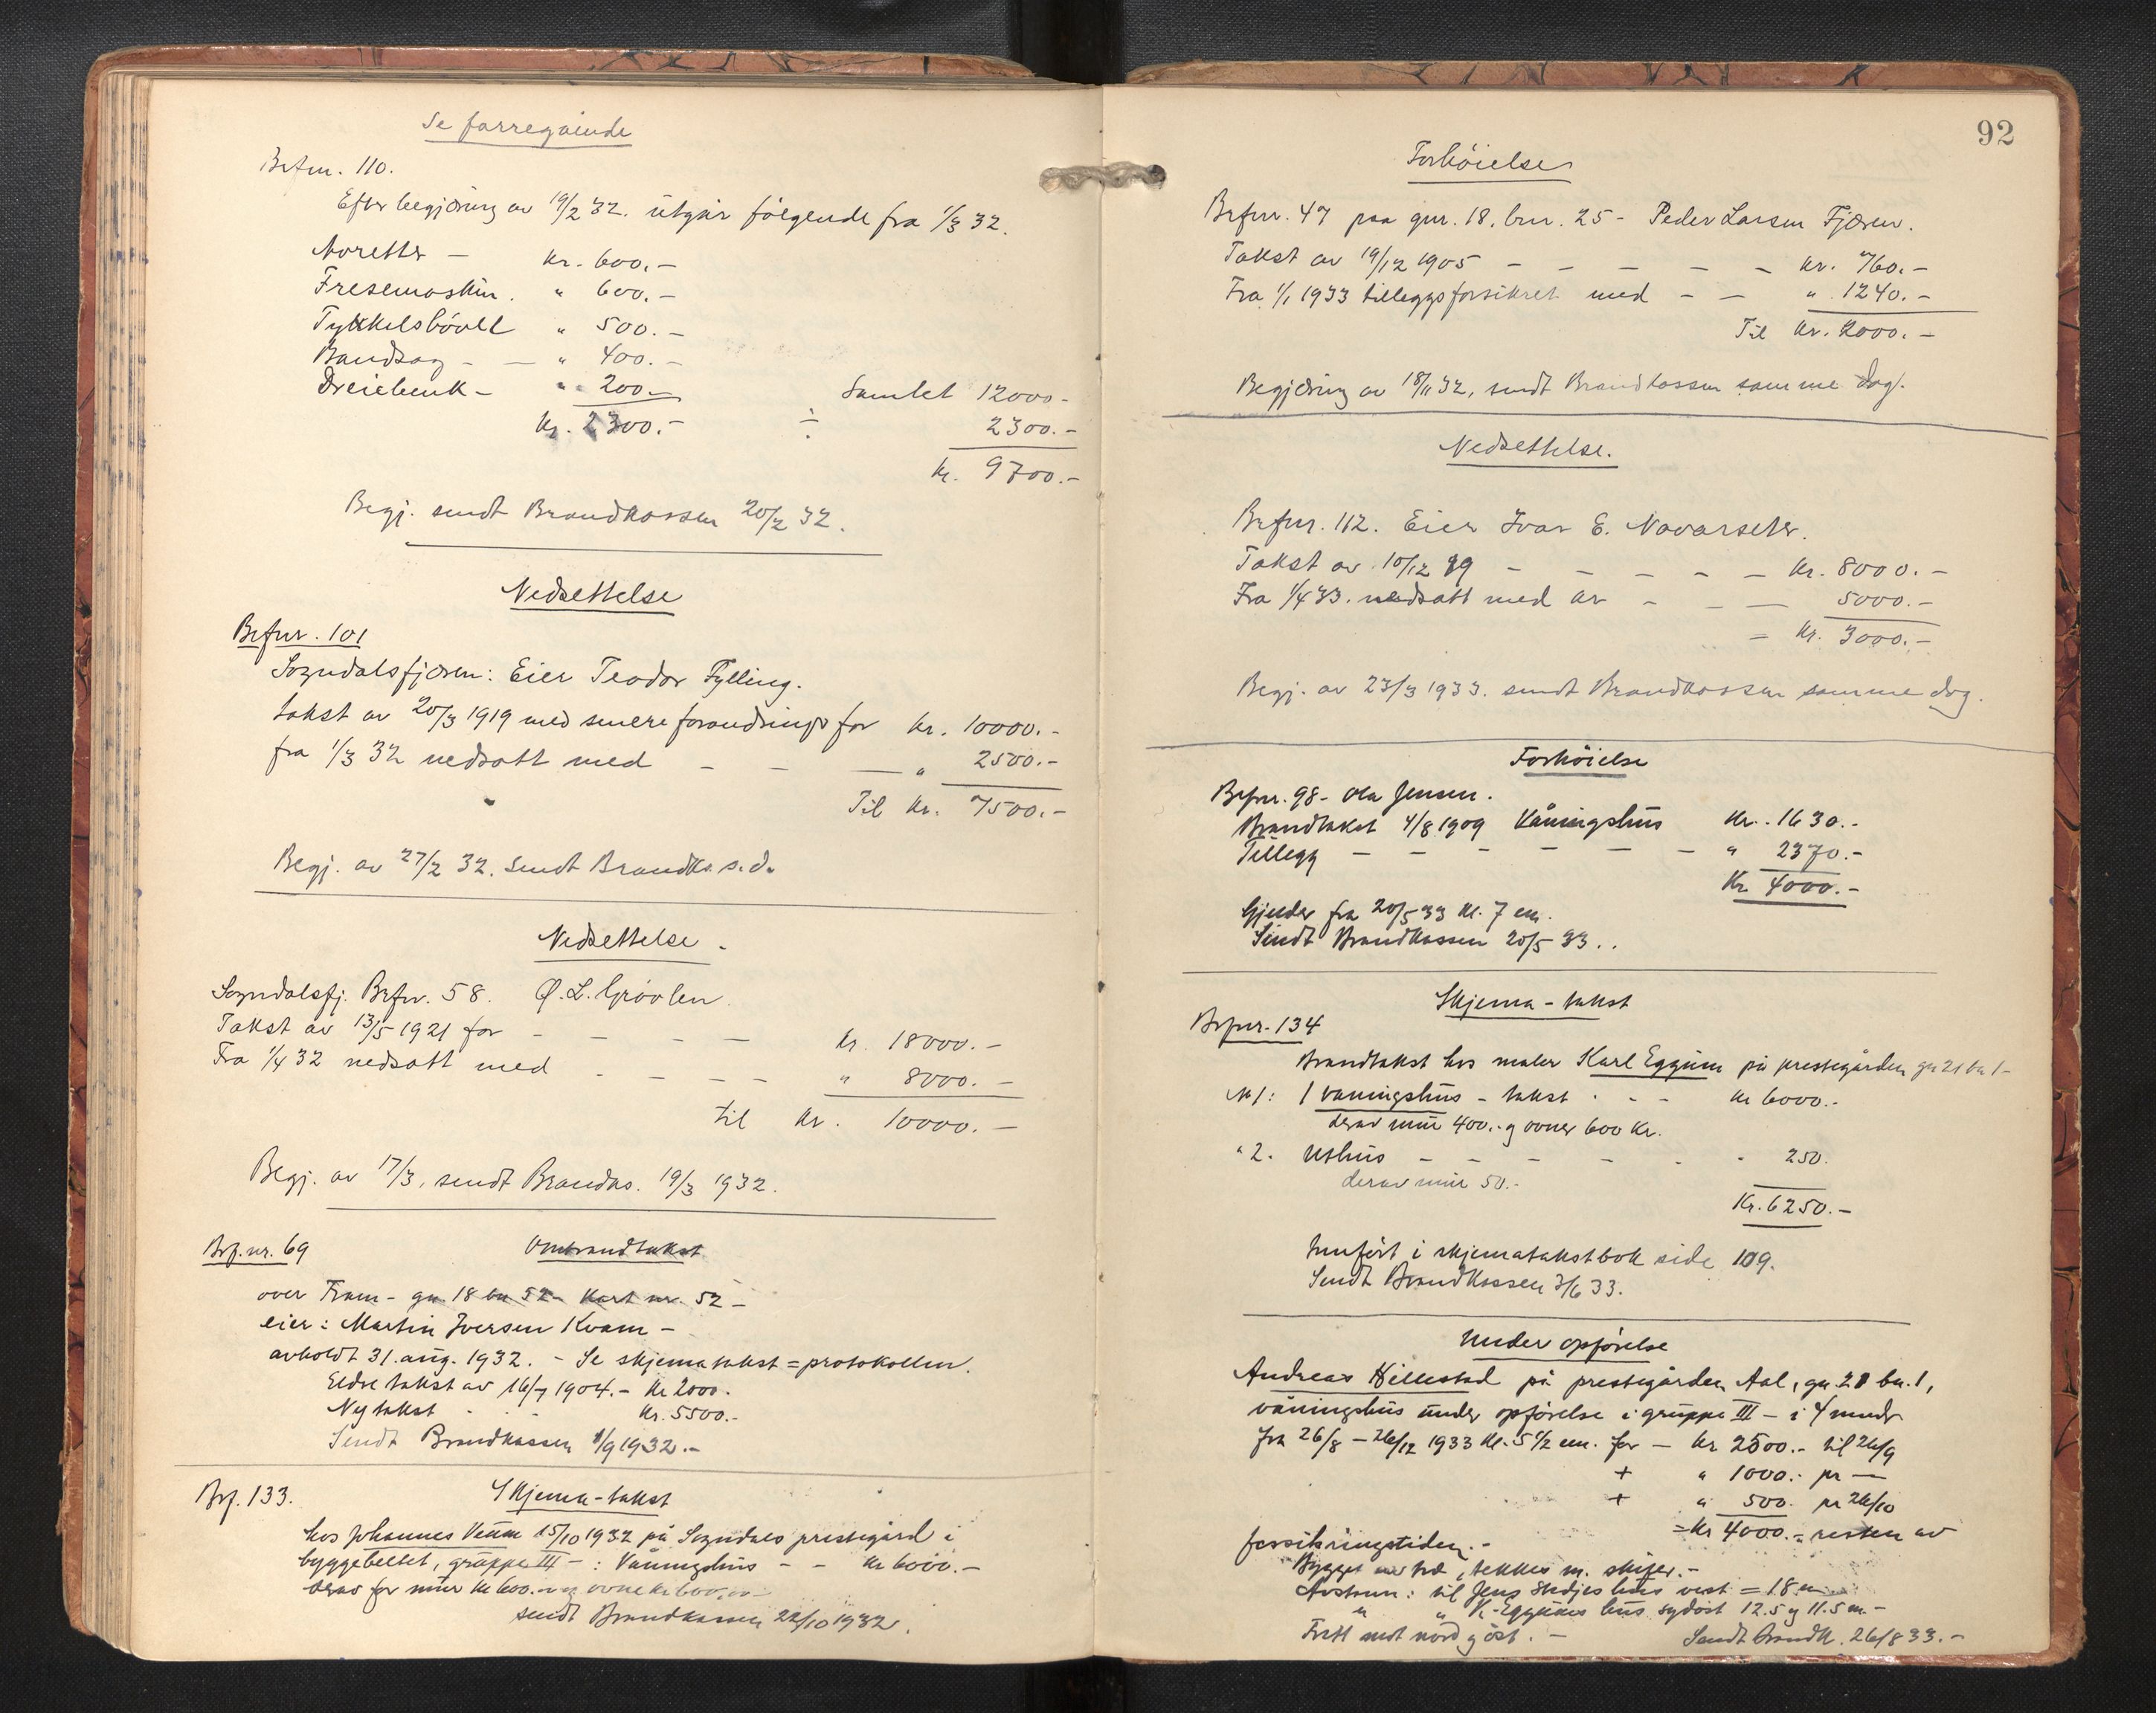 Se forregående
Brfnr. 110.
Efter begjæring av 19/2 32. utgår følgende fra 1/3 32.
Avretter — kr. 600.—
Fresemaskin. " 600.—
Tykkelshövll " 500.—
Bandsag — — " 400.—
Dreiebenk — " 200.— Samlet 12000.-
Kr. 2300.— ÷ 2300.—
kr. 9700.—
Begj. sendt Brandkassen 20/2 32.
Nedsettelse
Brfnr. 101
Sogndalsfjæren: Eier Teodor Fylling.
takst av 20/3 1919 med senere forandringer for kr. 10000.-
fra 1/3 32 nedsatt med — — — " 2500.-
Til kr. 7500.—
Begj. av 27/2 32. sendt Brandks. s.d.
Nedsettelse.
Sogndalsfj. Brfnr. 58. Ø. L. Grövlen.
Takst av 13/5 1921 for — — — — kr. 18000.—
Fra 1/4 32 nedsatt med - — — — " 8000.—
til kr. 10000.—
Begj. av 17/3, sendt Brandks. 19/3 1932.
Brf.nr. 69 Ombrandtakst
over Fram - gn 18 bn 52 - Kart nr. 52 —
eier: Martin Iversen Kvam —
avholdt 31. aug. 1932. - Se skjematakst=protokollen.
Eldre takst av 16/7 1904.- kr 2000.
Ny takst - - - kr. 5500.-
Sendt Brandkassen 1/9 1932.—
Brf. 133. Skjema-takst
hos Johannes Venm 15/10 1932 på Sogndals prestegård i
byggebeltet, gruppe III — : Våningshus — — kr 6000.—
derav for mur kr 600.- og ovne kr 600.-
sendt Brandkassen 22/10 1932.
92
Forhöielse
Brfnr. 47 paa gnr. 18. bnr. 25 - Peder Larsen Fjæren.
Takst av 19/12 1905 — — — — — kr. 760.—
Fra 1/1 1933 tilleggsforsikret med — — " 1240.—
Til kr. 2000.—
Begjæring av 18/11 32, sendt Brandkassen samme dag.
Nedsettelse.
Brfnr. 112. Eier Ivar E. Navarseter.
Takst av 10/12 29 — — — — — kr. 8000.—
Fra 1/4 33. nedsatt med kr — — — 5000.—
— kr. 3000.—
Begj. av 23/3 1933. sendt Brandkassen samme dag.
Forhöielse
Brfnr. 98- Ola Jensen.
Brandtakst 4/8 1909 Våningshus kr. 1630.-
Tillegg — — — — — — " 2370.-
Kr 4000.-
Gjelder fra 20/5 33 kl. 7 em.
Sendt Brandkassen 20/5 33..
Skjema-takst
Brfnr. 134
Brandtakst hos maler Karl Eggum på prestegården gn 21 bn 1-
№ 1: 1 våningshus - takst - - - kr 6000.-
derav mur 400.- og ovner 600 kr.
" 2. Uthus — — — — - - 250.
derav mur 50.-
Kr. 6250.—
Innfört i skjematakstbok side 109.
Sendt Brandkassen 3/6 33.
Under opførelse
Andreas Hillestad på prestegården Aal, gn. 21 bn. 1,
våningshus under opförelse i gruppe III - i 4 mndr
fra 26/8 - 26/12 1933 kl. 5 1/2 em. for — kr 2500.- til 26/9
+ " 1000.- pr —
+ " 500. pr 26/10
= kr 4000.- resten av
forsikringstiden.-
Bygget av tre, tekkes m. skifer.-
Avstann: til Jens Stedjes hus vest = 18 m
" " K. Eggums hus sydöst 12.5 og 11.5 m.-
Fritt mot nord og öst. — Sendt Brandk. 26/8 33.—